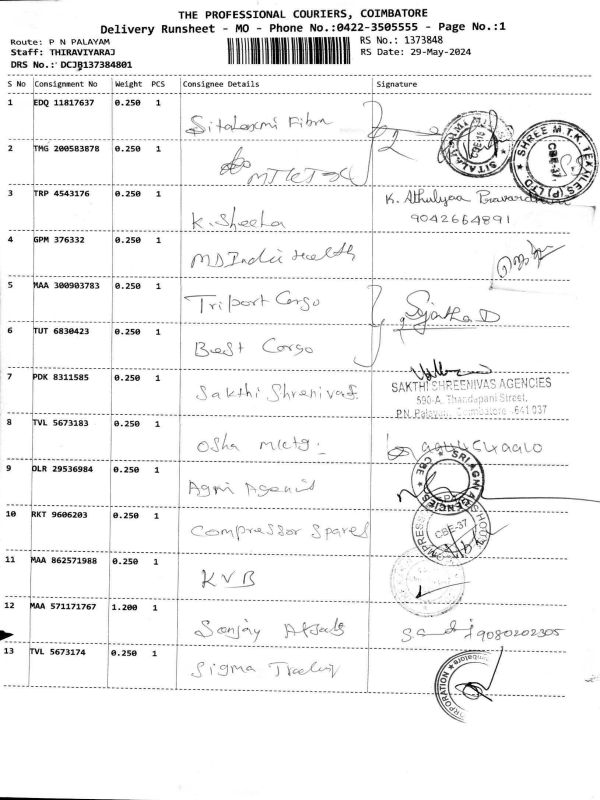 THE PROFESSIONAL COURIERS, COIMBATORE
Delivery Runsheet - MO - Phone No.:0422-3505555 - Page No.:1
Route: P N PALAYAM RS No.: 1373848
Staff: THIRAVIYARAJ RS Date: 29-May-2024
DRS No.: DCJB137384801
S No Consignment No Weight PCS Consignee Details Signature
1 EDQ 11817637 0.250 1
Sitalaxmi Fibra
2 TMG 200583878 0.250 1
SHREE M.T.K. TEXTILES (P) LTD CBE-37
3 TRP 4543176 0.250 1
K. Athulyaa
K. Sheeha 9042664891
4 GPM 376332 0.250 1
MD India Health
5 MAA 300903783 0.250 1
Triport Cargo Sujatha D
6 TUT 6830423 0.250 1
Best Corgo
7 PDK 8311585 0.250 1
SAKTHI SHREENIVAS AGENCIES
Sakthi Shrenivas 590-A, Thandapani Street,
P.N. Palayam, Coimbatore - 641 037
8 TVL 5673183 0.250 1
Osha
9 DLR 29536984 0.250 1
SRI AGNI AGENCIES CBE
Agni
10 RKT 9606203 0.250 1
CBE-37
Compressor Spares
11 MAA 862571988 0.250 1
KVB
12 MAA 571171767 1.200 1
Sonjay 9080202305
13 TVL 5673174 0.250 1
Sigma